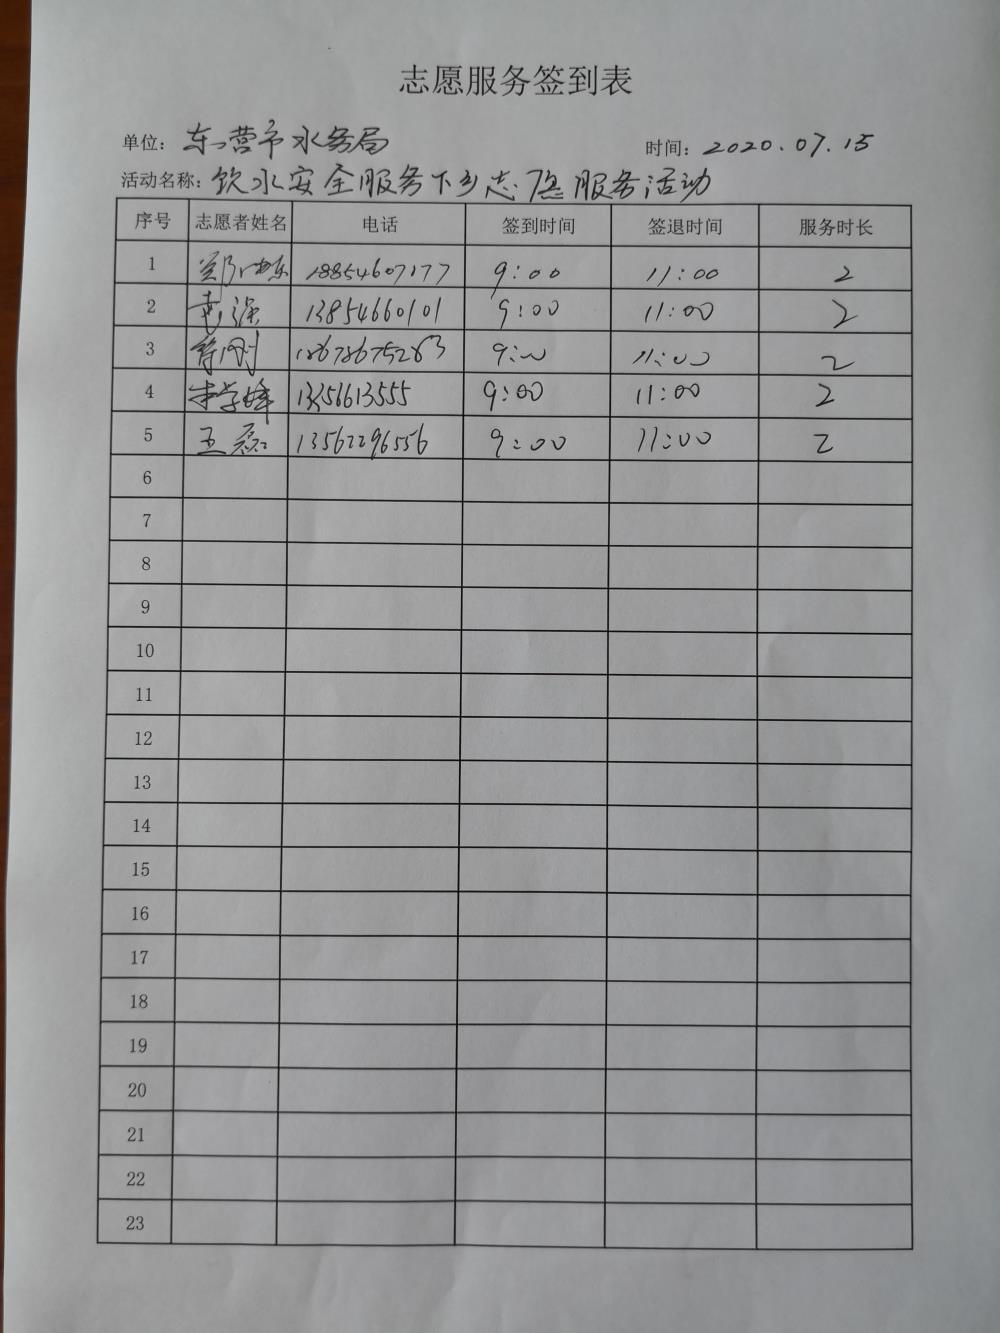 志愿服务签到表
单位：东营市水务局 时间：2020.07.15
活动名称：饮水安全服务下乡志愿服务活动
序号 志愿者姓名 电话 签到时间 签退时间 服务时长
1 18854607177 9:00 11:00 2
2 强 13854660101 9:00 11:00 2
3 刚 11:00 2
4 13256613555 9:00 11:00 2
5 王磊 13562296556 9:00 11:00 2
6
7
8
9
10
11
12
13
14
15
16
17
18
19
20
21
22
23